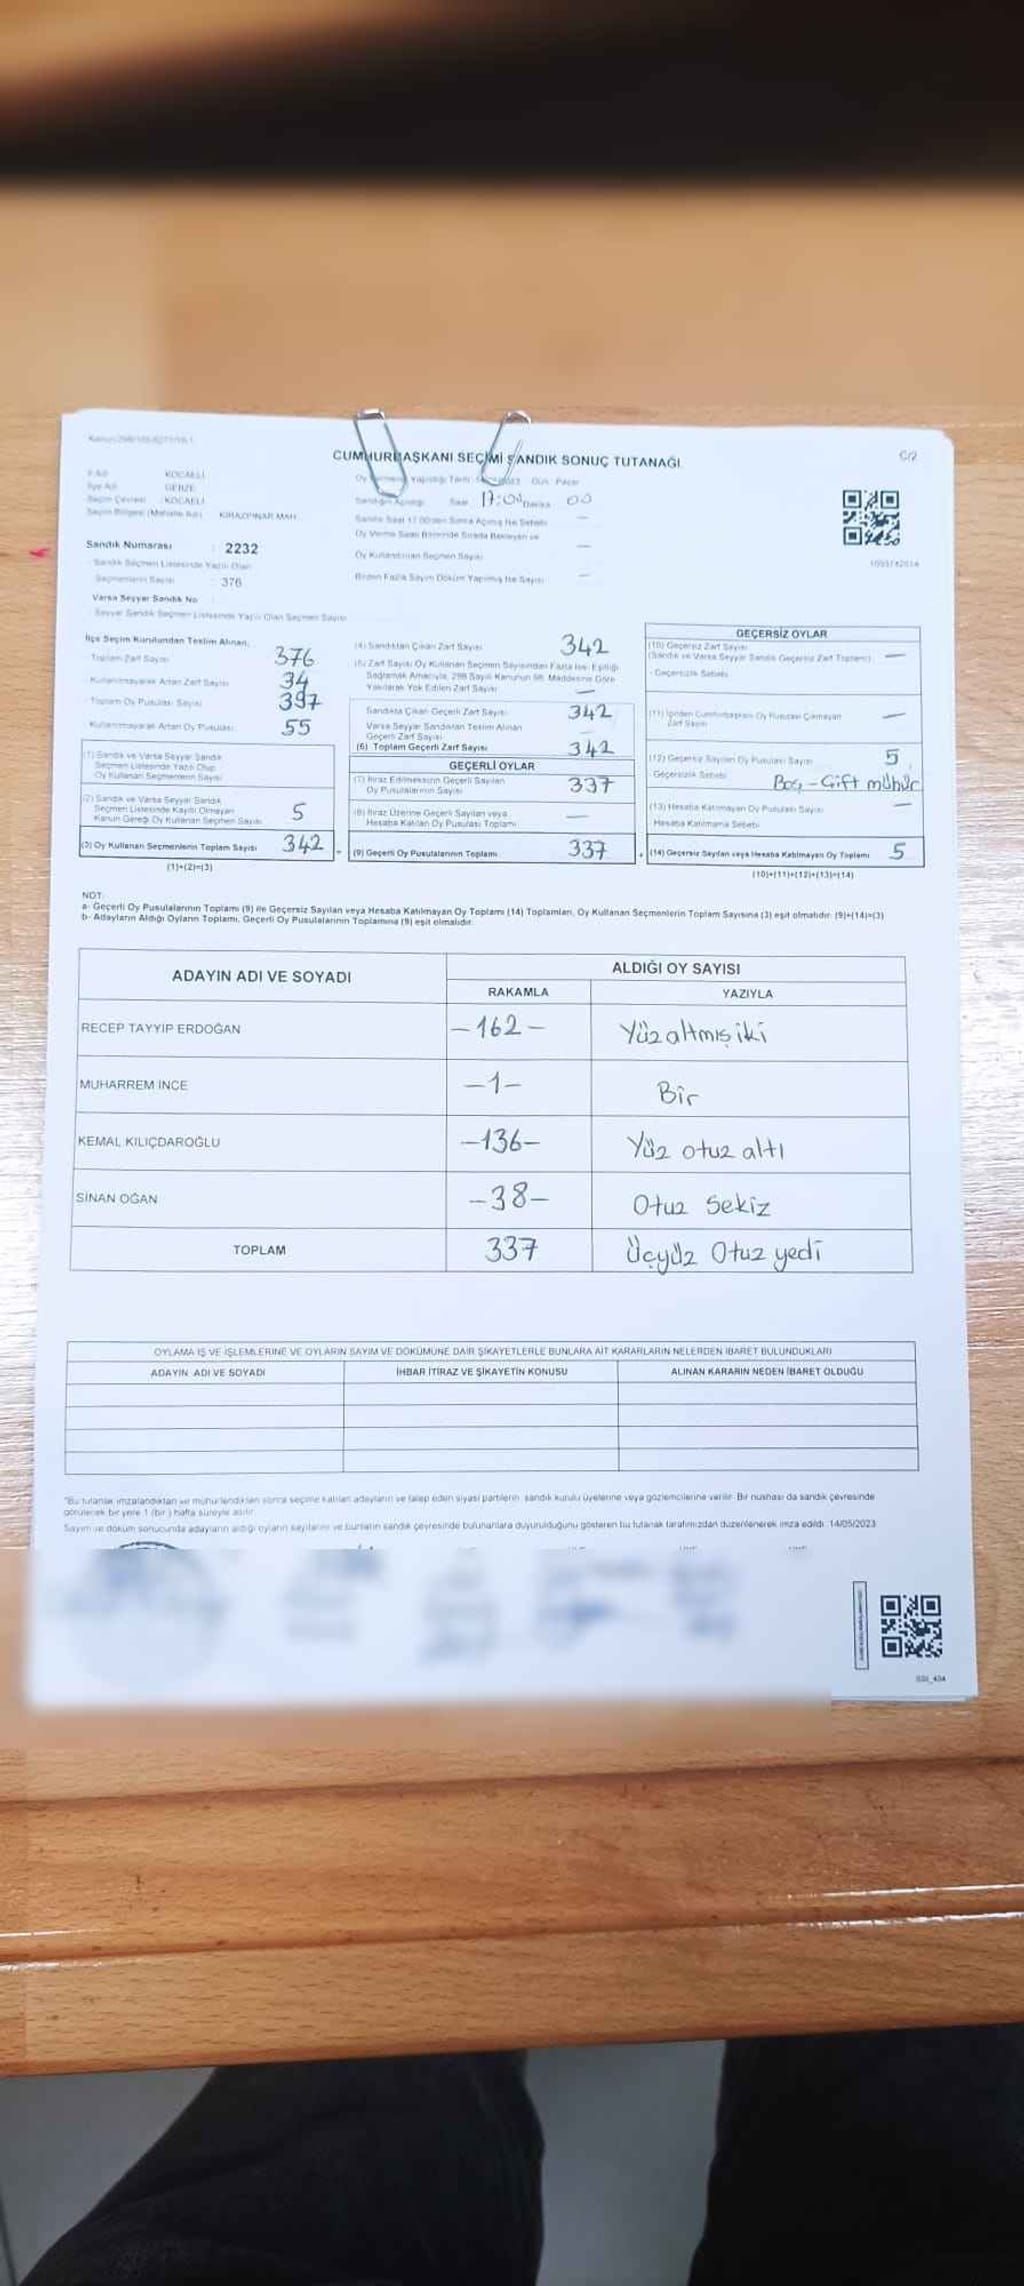 CUMHURBAŞKANI SEÇİMİ SANDIK SONUÇ TUTANAĞI
C/2
İl Adı KOCAELİ
İlçe Adı GEBZE
Seçim Çevresi KOCAELİ
Seçim Bölgesi (Mahalle Adı) KİRAZPINAR MAH.
Saat 17:00 Dakika 00
Sandık Numarası : 2232
Sandık Seçmen Listesinde Yazılı Olan
Seçmenlerin Sayısı : 376
Varsa Seyyar Sandık No
Seyyar Sandık Seçmen Listesinde Yazılı Olan Seçmen Sayısı
Oy Kullandırılan Seçmen Sayısı
Birden Fazla Sayım Döküm Yapılmış İse Sayısı
İlçe Seçim Kurulundan Teslim Alınan;
Toplam Zarf Sayısı 376
Kullanılmayarak Artan Zarf Sayısı 34
Toplam Oy Pusulası Sayısı 397
Kullanılmayarak Artan Oy Pusulası 55
(1) Sandık ve Varsa Seyyar Sandık
Seçmen Listesinde Yazılı Olup
Oy Kullanan Seçmenlerin Sayısı
(2) Sandık ve Varsa Seyyar Sandık
Seçmen Listesinde Kayıtlı Olmayan
Kanun Gereği Oy Kullanan Seçmen Sayısı 5
(3) Oy Kullanan Seçmenlerin Toplam Sayısı 342
(1)+(2)=(3)
(4) Sandıktan Çıkan Zarf Sayısı 342
(5) Zarf Sayısı Oy Kullanan Seçmen Sayısından Fazla İse, Eşitliği
Sağlamak Amacıyla, 298 Sayılı Kanunun 98. Maddesine Göre
Yakılarak Yok Edilen Zarf Sayısı —
Sandıkta Çıkan Geçerli Zarf Sayısı 342
Varsa Seyyar Sandıktan Teslim Alınan
Geçerli Zarf Sayısı
(6) Toplam Geçerli Zarf Sayısı 342
GEÇERLİ OYLAR
(7) İtiraz Edilmeksizin Geçerli Sayılan
Oy Pusulalarının Sayısı 337
(8) İtiraz Üzerine Geçerli Sayılan veya
Hesaba Katılan Oy Pusulası Toplamı —
(9) Geçerli Oy Pusulalarının Toplamı 337
GEÇERSİZ OYLAR
(10) Geçersiz Zarf Sayısı
(Sandık ve Varsa Seyyar Sandık Geçersiz Zarf Toplamı) —
Geçersizlik Sebebi
(11) İçinden Cumhurbaşkanı Oy Pusulası Çıkmayan
Zarf Sayısı —
(12) Geçersiz Sayılan Oy Pusulası Sayısı 5
Geçersizlik Sebebi Boş - Çift mühür
(13) Hesaba Katılmayan Oy Pusulası Sayısı —
Hesaba Katılmama Sebebi
(14) Geçersiz Sayılan veya Hesaba Katılmayan Oy Toplamı 5
(10)+(11)+(12)+(13)=(14)
NOT:
a- Geçerli Oy Pusulalarının Toplamı (9) ile Geçersiz Sayılan veya Hesaba Katılmayan Oy Toplamı (14) Toplamları, Oy Kullanan Seçmenlerin Toplam Sayısına (3) eşit olmalıdır. (9)+(14)=(3)
b- Adayların Aldığı Oyların Toplamı, Geçerli Oy Pusulalarının Toplamına (9) eşit olmalıdır.
ADAYIN ADI VE SOYADI ALDIĞI OY SAYISI
RAKAMLA YAZIYLA
RECEP TAYYİP ERDOĞAN -162- Yüz altmış iki
MUHARREM İNCE -1- Bir
KEMAL KILIÇDAROĞLU -136- Yüz otuz altı
SİNAN OĞAN -38- Otuz Sekiz
TOPLAM 337 Üçyüz Otuz yedi
OYLAMA İŞ VE İŞLEMLERİNE VE OYLARIN SAYIM VE DÖKÜMÜNE DAİR ŞİKAYETLERLE BUNLARA AİT KARARLARIN NELERDEN İBARET BULUNDUKLARI
ADAYIN ADI VE SOYADI İHBAR İTİRAZ VE ŞİKAYETİN KONUSU ALINAN KARARIN NEDEN İBARET OLDUĞU
"Bu tutanak imzalandıktan ve mühürlendikten sonra seçime katılan adayların ve talep eden siyasi partilerin sandık kurulu üyelerine veya gözlemcilerine verilir. Bir nüshası da sandık çevresinde
görülecek bir yere 1 (bir) hafta süreyle asılır.
Sayım ve döküm sonucunda adayların aldığı oyların sayılarını ve bunların sandık çevresinde bulunanlara duyurulduğunu gösteren bu tutanak tarafımızdan düzenlenerek imza edildi. 14/05/2023